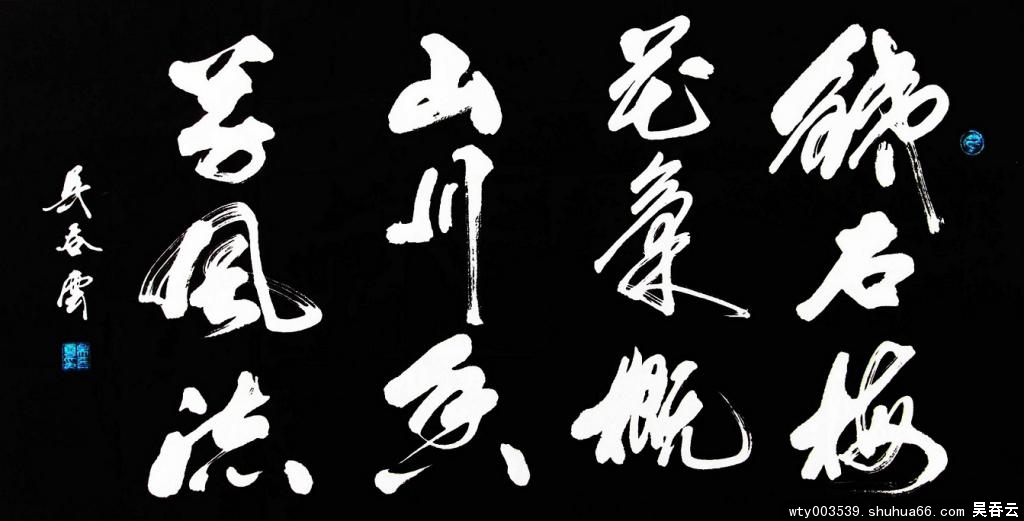 銕石梅
花氣概
山川香
草風流
吴吞雲
wty003539.shuhua66.com 吴吞云